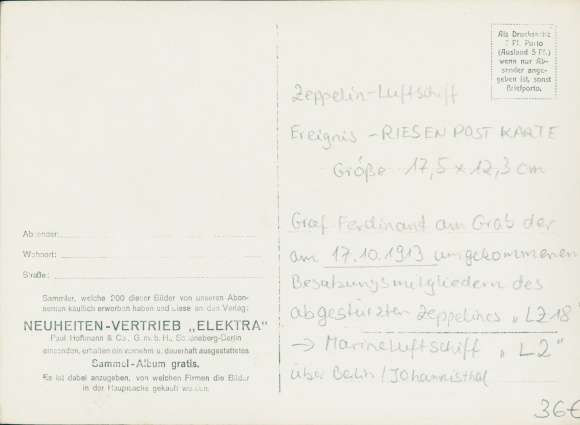 Als Drucksache
Pf. Porto
(Ausland 5 Pf.)
wenn nur Ab-
sender ange-
geben ist, sonst
Briefporto.
Zeppelin-Luftschiff
Ereignis - RIESENPOSTKARTE
Größe 17,5 x 12,3 cm
Graf Ferdinant am Grab der
am 17.10.1913 umgekommenen
Besatzungsmitgliedern des
abgestürzten Zeppelines „LZ 18"
→ Marineluftschiff „L2"
über Berlin / Johannisthal
36€
Absender:
Wohnort:
Straße:
Sammler, welche 200 dieser Bilder von unseren Abon-
nenten käuflich erworben haben und diese an den Verlag:
NEUHEITEN-VERTRIEB „ELEKTRA"
Paul Hoffmann & Co., G. m. b. H., Schöneberg-Berlin
einsenden, erhalten ein vornehm u. dauerhaft ausgestattetes
Sammel-Album gratis.
Es ist dabei anzugeben, von welchen Firmen die Bilder
in der Hauptsache gekauft wurden.